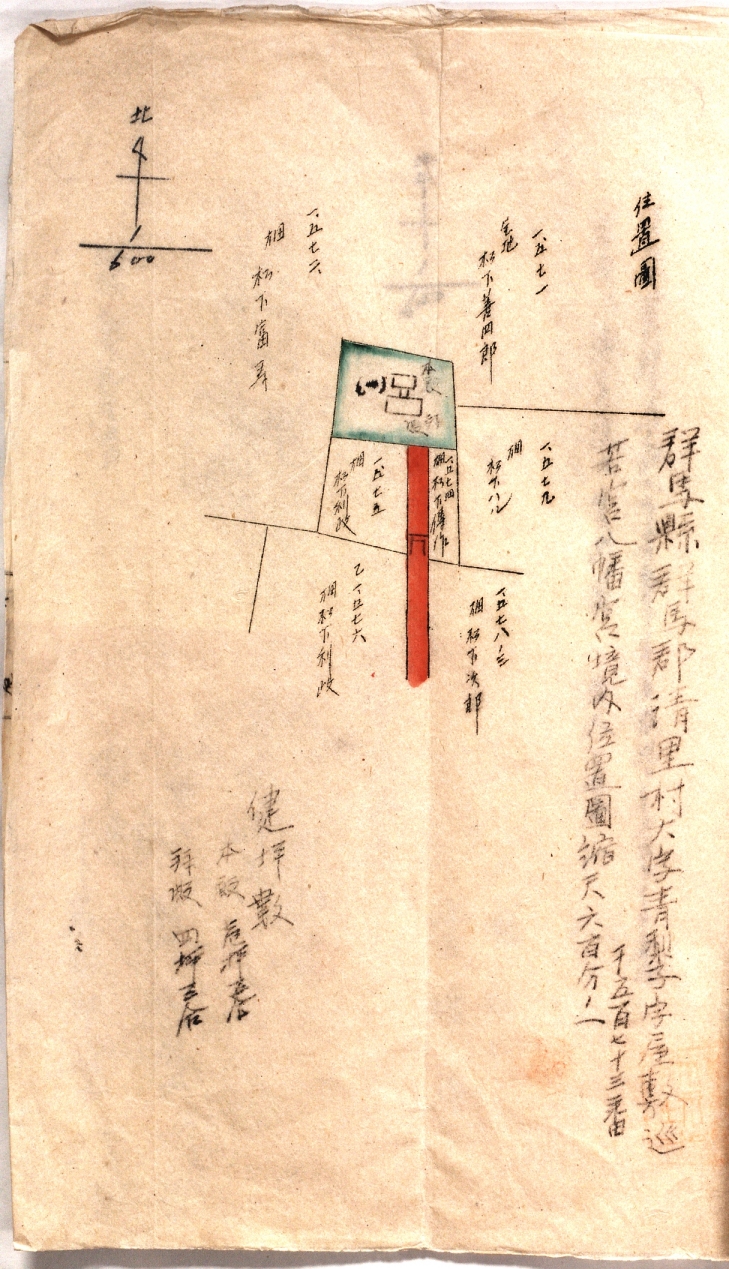 位置圖
群馬縣群馬郡清里村大字青梨子字屋敷巡
千五百七十三番
若宮八幡宮境内位置圖縮尺六百分ノ一
一、五七一
宅地 松下善四郎
一、五七二
畑 松下富
北
1
600
本殿
拝殿
一、五七九
畑 松下八
一、五七四
畑 松下傳作
一、五七五
畑 松下利政
一、五七八ノ三
畑 松下次郎
乙一、五七六
畑 松下利政
健坪数
本殿
拝殿 四坪